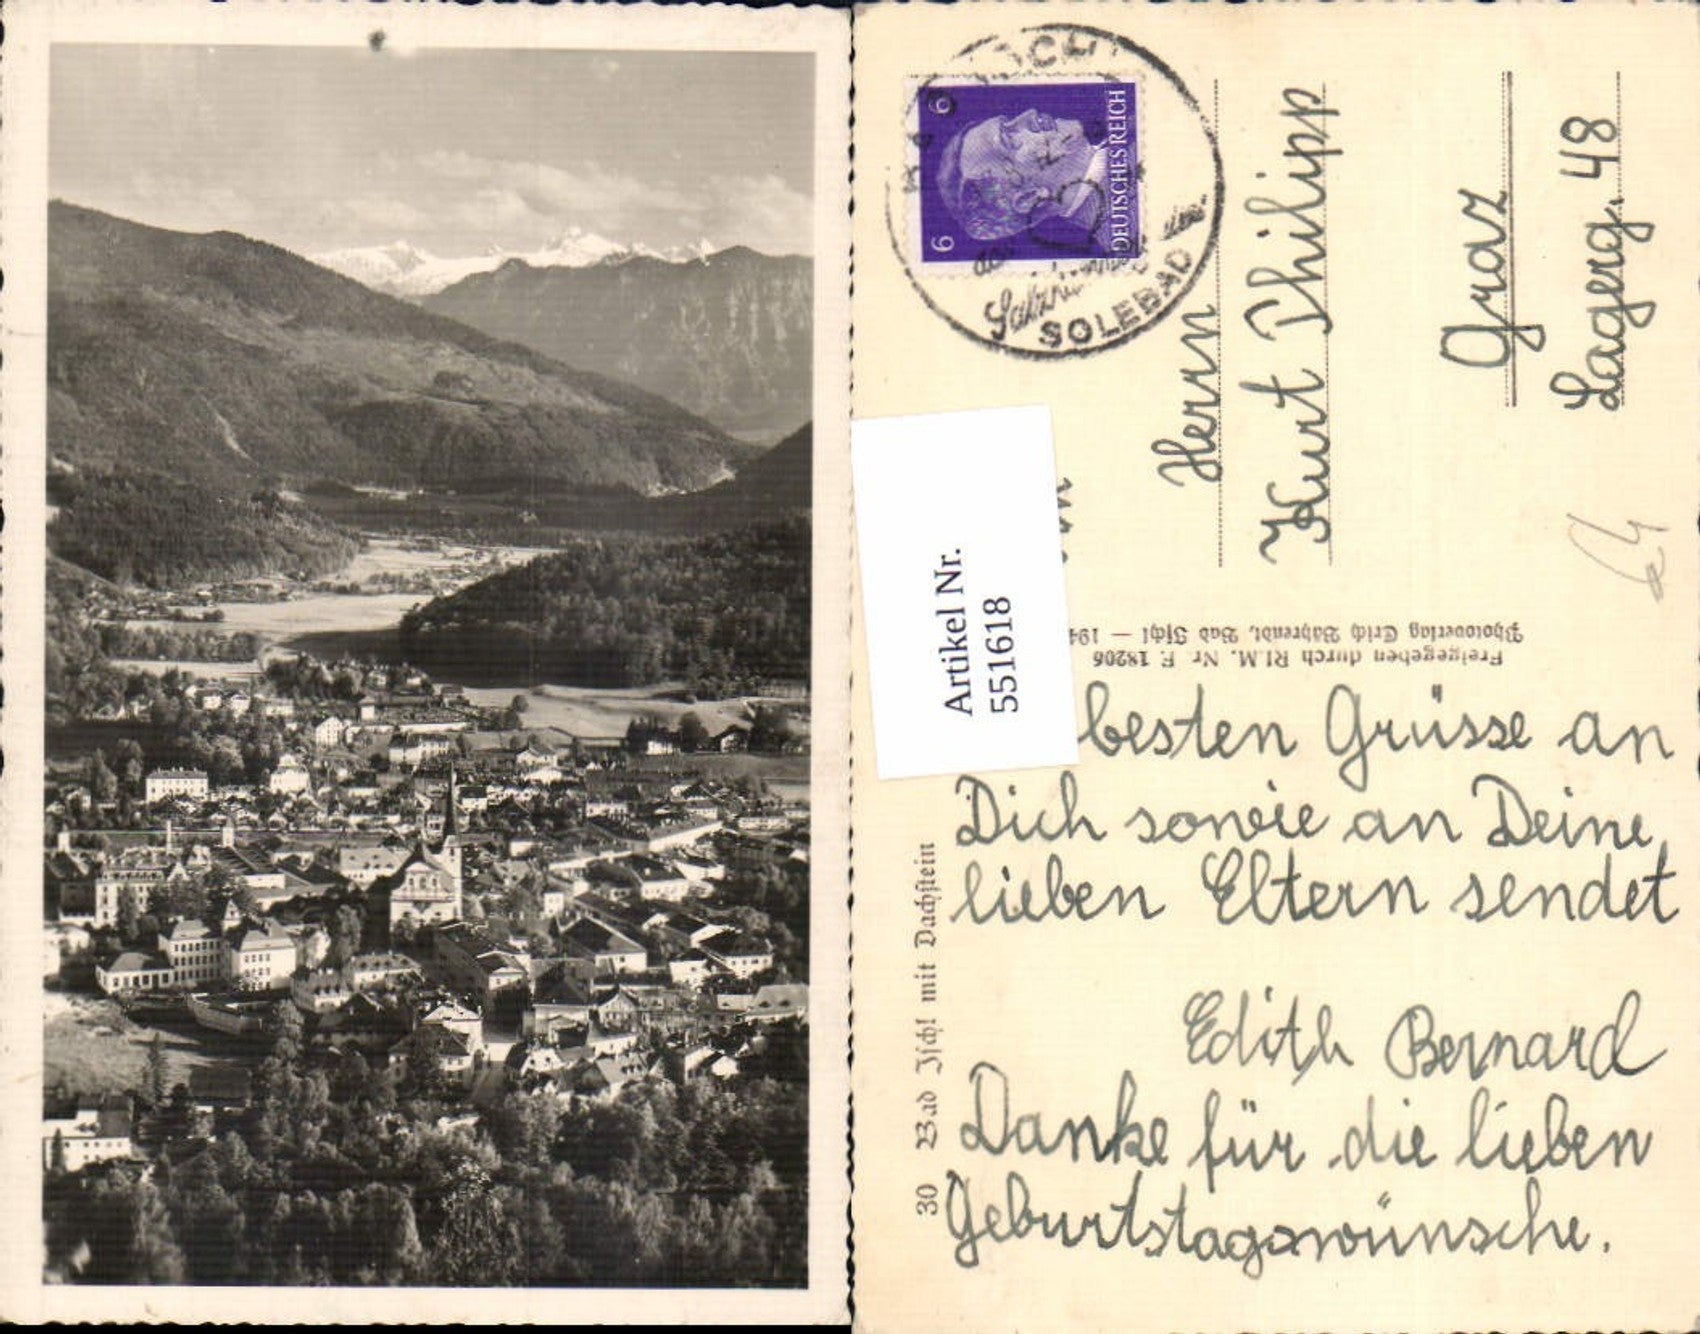 BAD ISCHL
das
im
SOLEBAD
6
6
DEUTSCHES REICH
Herrn
Kurt Philipp
Graz
Laagerg. 48
Artikel Nr.
551618
Photoverlag Erich Bährendt, Bad Ischl — 194
Freigegeben durch RLM. Nr F. 18206
besten Grüsse an
Dich sowie an Deine
lieben Eltern sendet
Edith Bernard
Danke für die lieben
Geburtstagswünsche.
30 Bad Ischl mit Dachstein